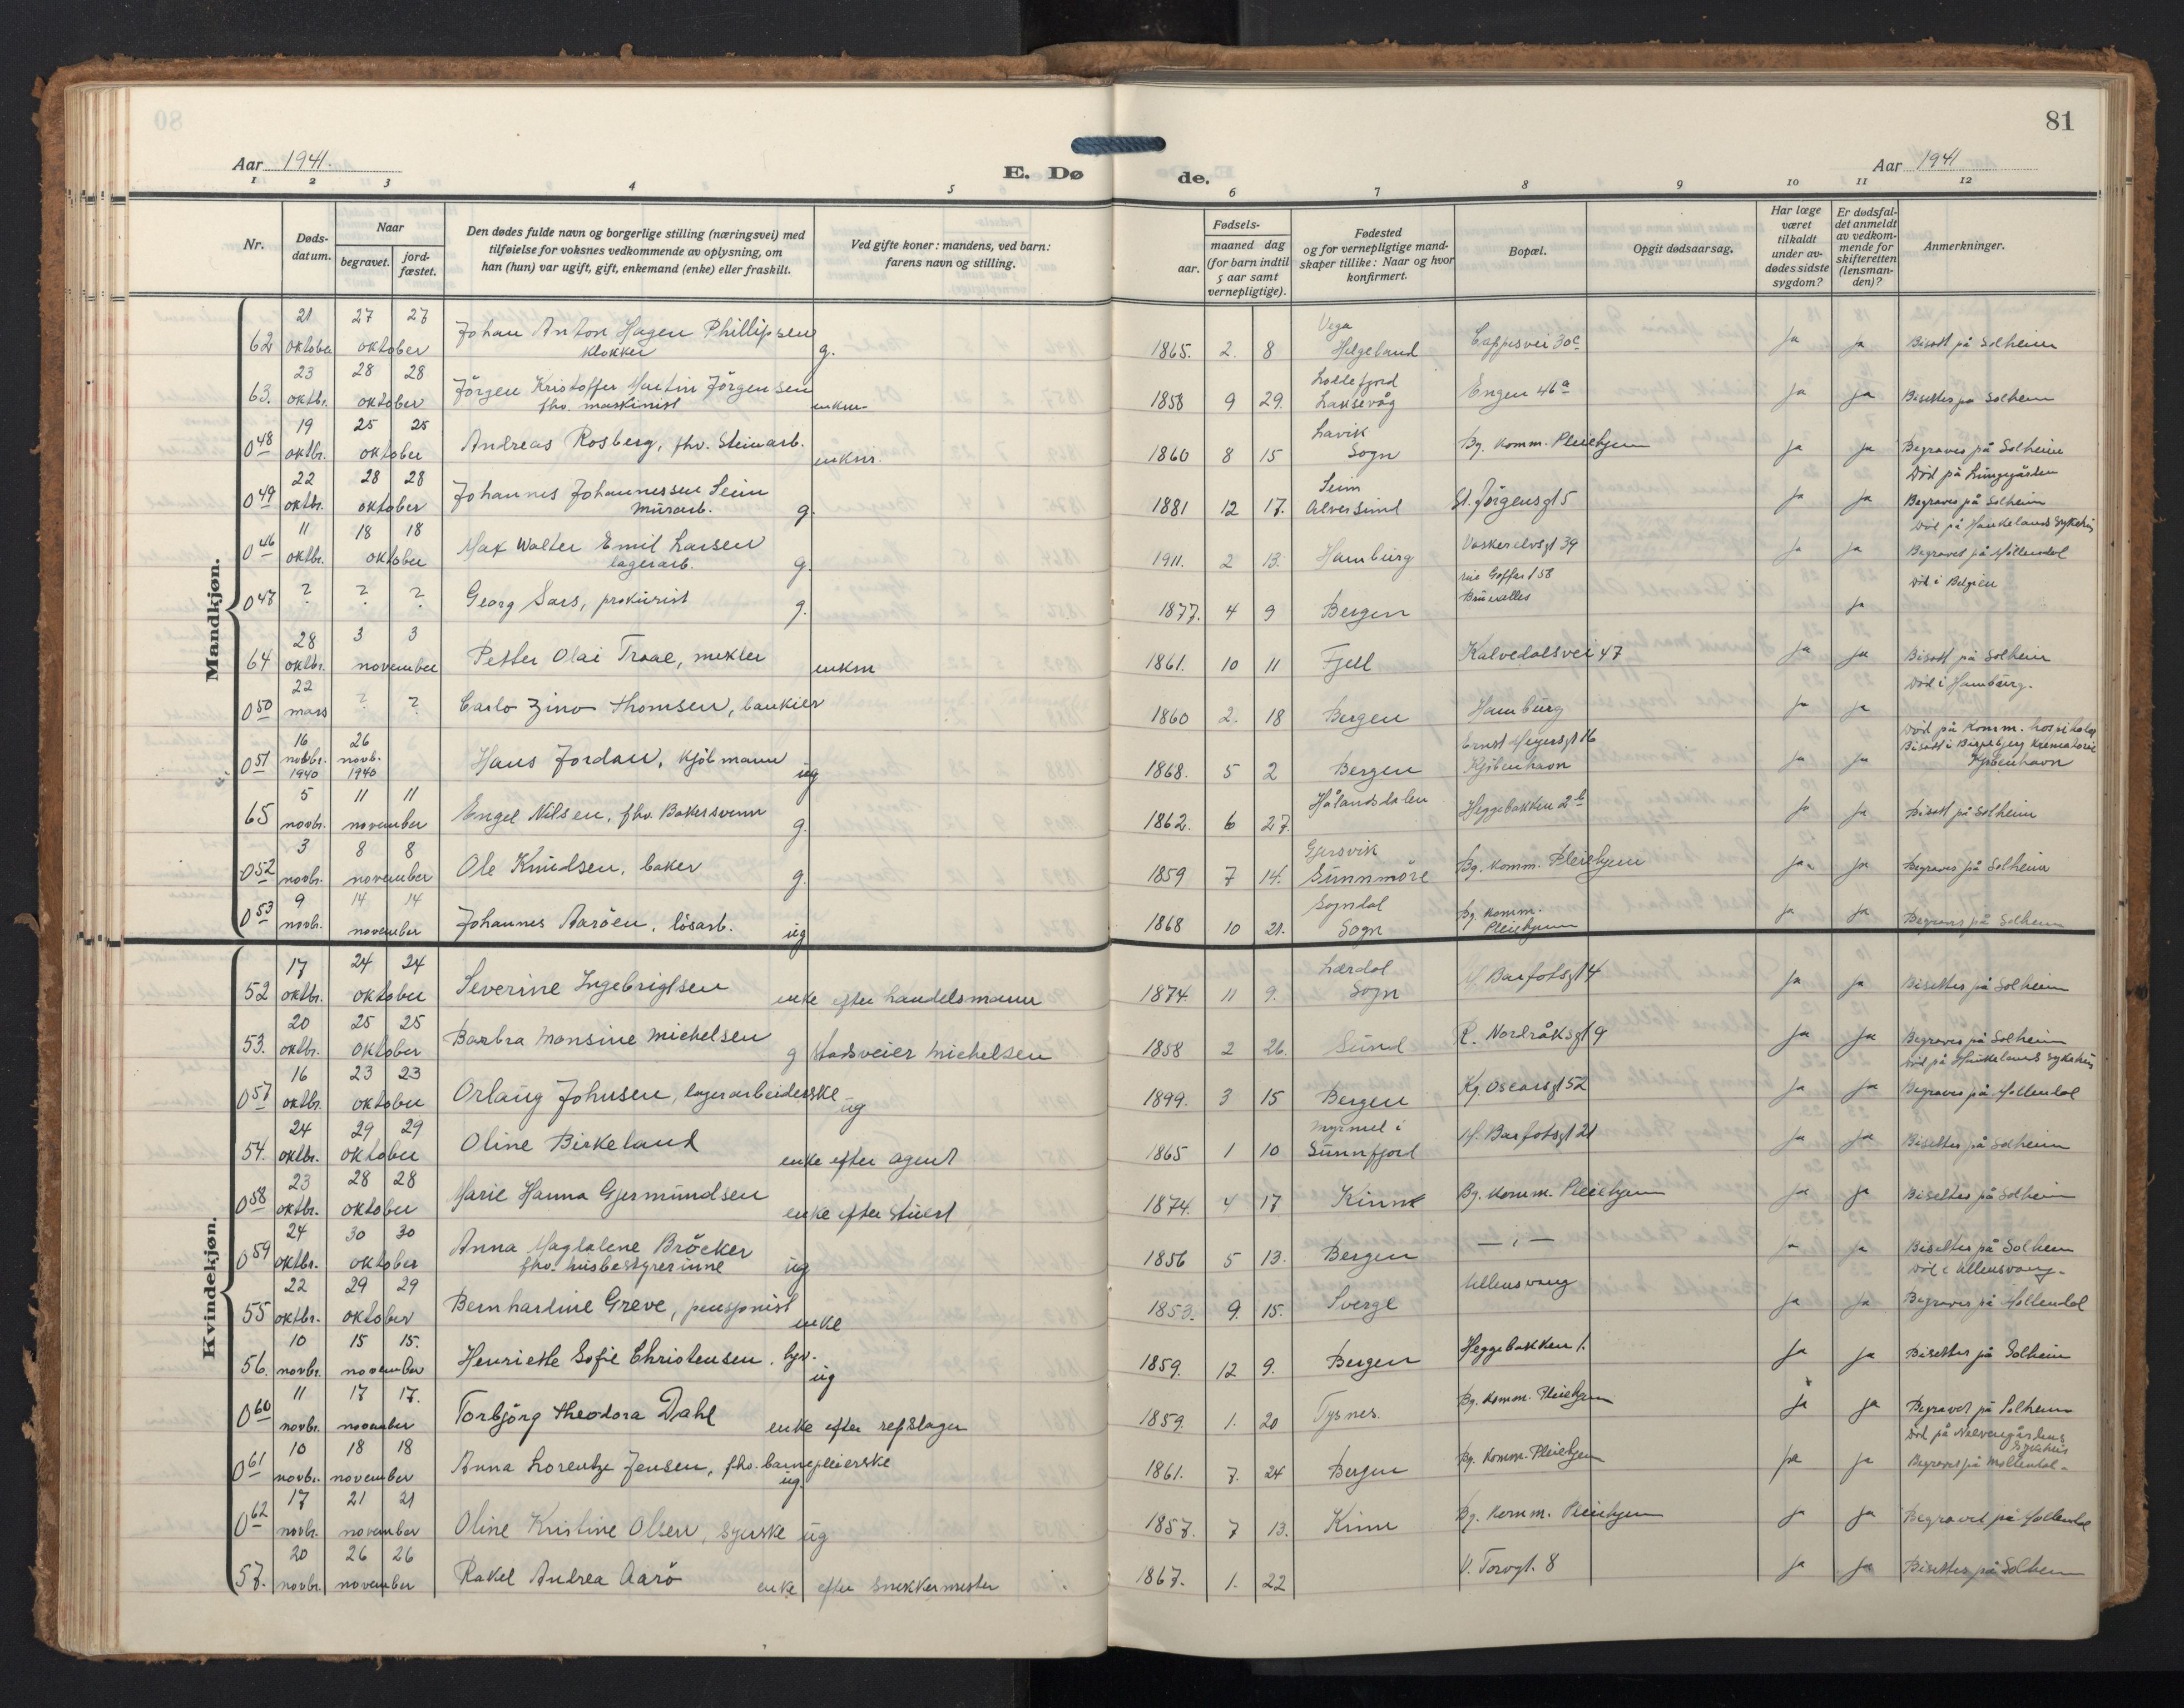 80
81
Aar 1941.
E. Dø
de.
Aar 1941
1 2 3 4 5
6 7 8 9 10 11 12
Nr.
Døds-
datum.
Naar
begravet.
jord-
fæstet.
Den dødes fulde navn og borgerlige stilling (næringsvei) med
tilføielse for voksnes vedkommende av oplysning, om
han (hun) var ugift, gift, enkemand (enke) eller fraskilt.
Ved gifte koner: mandens, ved barn:
farens navn og stilling.
Fødsels-
aar.
maaned dag
(for barn indtil
5 aar samt
vernepligtige).
Fødested
og for vernepligtige mand-
skaper tillike: Naar og hvor
konfirmert.
Bopæl.
Opgit dødsaarsag.
Har læge
været
tilkaldt
under av-
dødes sidste
sygdom?
Er dødsfal-
det anmeldt
av vedkom-
mende for
skifteretten
(lensman-
den)?
Anmerkninger.
Mandkjøn.
62 21 oktober 27 27 oktober Johan Anton Hagen Phillipsen klokker g. 1865. 2. 8 Vega Helgeland Cappesvei 30c ja ja Bisatt på Solheim
63. 23 oktbr. 28 28 oktober Jörgen Kristoffer Martin Jörgensen fhv. maskinist enkm. 1858 9 29. Laksevåg Engen 46a ja ja Bisettes på Solheim
048 19 oktbr. 25 25 oktober Andreas Rosberg, fhv. Steinarb. enkm. 1860 8 15 Lavik Sogn Bg. komm. Pleiehjem ja ja Begraves på Solheim
049 22 oktbr. 28 28 oktober Johannes Johannessen Seim murarb. g. 1881 12 17. Seim Alversund St. Jörgensgt 5 ja ja Död på Lunggården Begraves på Solheim
046 11 oktbr. 18 18 oktober Max Walter Emil Larsen lagerarb. g. 1911. 2 13. Hamburg Vaskerelvsgt 39 ja ja Död på Haukelands Sykehus Begravet på Möllendal
047 ? ? ? Georg Sars, prokurist g. 1877. 4 9 Bergen rue Goffart 58 Bruxelles ja Död i Belgien
64 28 oktbr. 3 3 november Petter Olai Traae, mekler enkm 1861. 10 11 Fjell Kalvedalsvei 47 ja ja Bisatt på Solheim
050 22 mars ? ? Carlo Zino Thomsen, bankier 1860 2. 18 Bergen Hamburg ja ja Död i Hamburg.
051 16 novbr. 1940 26 novb. 1940 Hans Jordan, kjöbmann ug 1868. 5 2 Bergen Ernst Meyersgt 16 Kjöbenhavn ja ja Död på Komm. hospitalet Bisatt i Bispebjerg Krematorie Kjöbenhavn
65 5 novbr. 11 11 november Engel Nilsen, fhv. Bakersvenn g. 1862. 6 27. Hålandsdalen Heggebakken 2b ja ja Bisatt på Solheim
052 3 novbr. 8 8 november Ole Knudsen, baker g. 1859 7 14. Gjersvik Sunnmöre Bg. komm. Pleiehjem ja ja Begraves på Solheim
053 9 novbr. 14 14 november Johannes Aaröen, lösarb. ug 1868 10 21. Sogndal Sogn Bg. komm. Pleiehjem ja ja Begraves på Solheim
Kvindekjøn.
52 17 oktbr. 24 24 oktober Severine Ingebrigtsen enke efter handelsmann 1874 11 9. Lærdal Sogn M. Barfotsgt 4 ja ja Bisettes på Solheim
53. 20 oktbr. 25 25 oktober Barbra Monsine Michelsen g stadsveier Michelsen 1858 2 26. Sund R. Nordråksgt 9 ja ja Begraves på Solheim
057 16 oktbr. 23 23 oktober Orlaug Johnsen, lagerarbeiderske ug 1899. 3 15 Bergen Kg. Oscarsgt 52 ja ja Död på Haukelands sykehus Begraves på Möllendal
54. 24 oktbr. 29 29 oktober Oline Birkeland enke efter agent 1865 1 10 Myrmel i Sunnfjord M. Barfotsgt 21 ja ja Bisettes på Solheim
058 23 oktbr. 28 28 oktober Marie Hanna Gjermundsen enke efter stuert 1874. 4 17 Kinn Bg. komm. Pleiehjem ja ja Bisettes på Solheim
059 24 oktbr. 30 30 oktober Anna Magdalene Bröcker fhv. husbestyrerinne ug 1856 5 13. Bergen — " — ja ja Bisettes på Solheim
55 22 oktbr. 29 29 oktober Bernhardine Greve, pensjonist enke 1853. 9. 15. Sverge Ullensvang ja ja Död i Ullensvang. Begraves på Möllendal
56. 10 novbr. 15 15. november Henriette Sofie Christensen. ug 1859. 12 9. Bergen Heggebakken 1. ja ja Bisettes på Solheim
060 11 novbr. 17 17. november Torbjörg Theodora Dahl enke efter repslager 1859. 1. 20 Tysnes. Bg. komm. Pleiehjem ja ja Begravet på Solheim
061 10 novbr. 18 18 november Anna Lorentze Jensen, fhv. barnepleierske ug. 1861. 7. 24 Bergen Bg. komm. Pleiehjem ja ja Död på sykehus Begraves på Möllendal.
062 17 novbr. 21 21 november Oline Kristine Olsen, syerske ug 1857. 7 13. Kinn Bg. komm. Pleiehjem ja ja Begravet på Möllendal
57. 20 novbr. 26 26 november Rakel Andrea Aarö enke efter snekkermester 1867. 1. 22 V. Torvgt. 8 ja ja Bisettes på Solheim